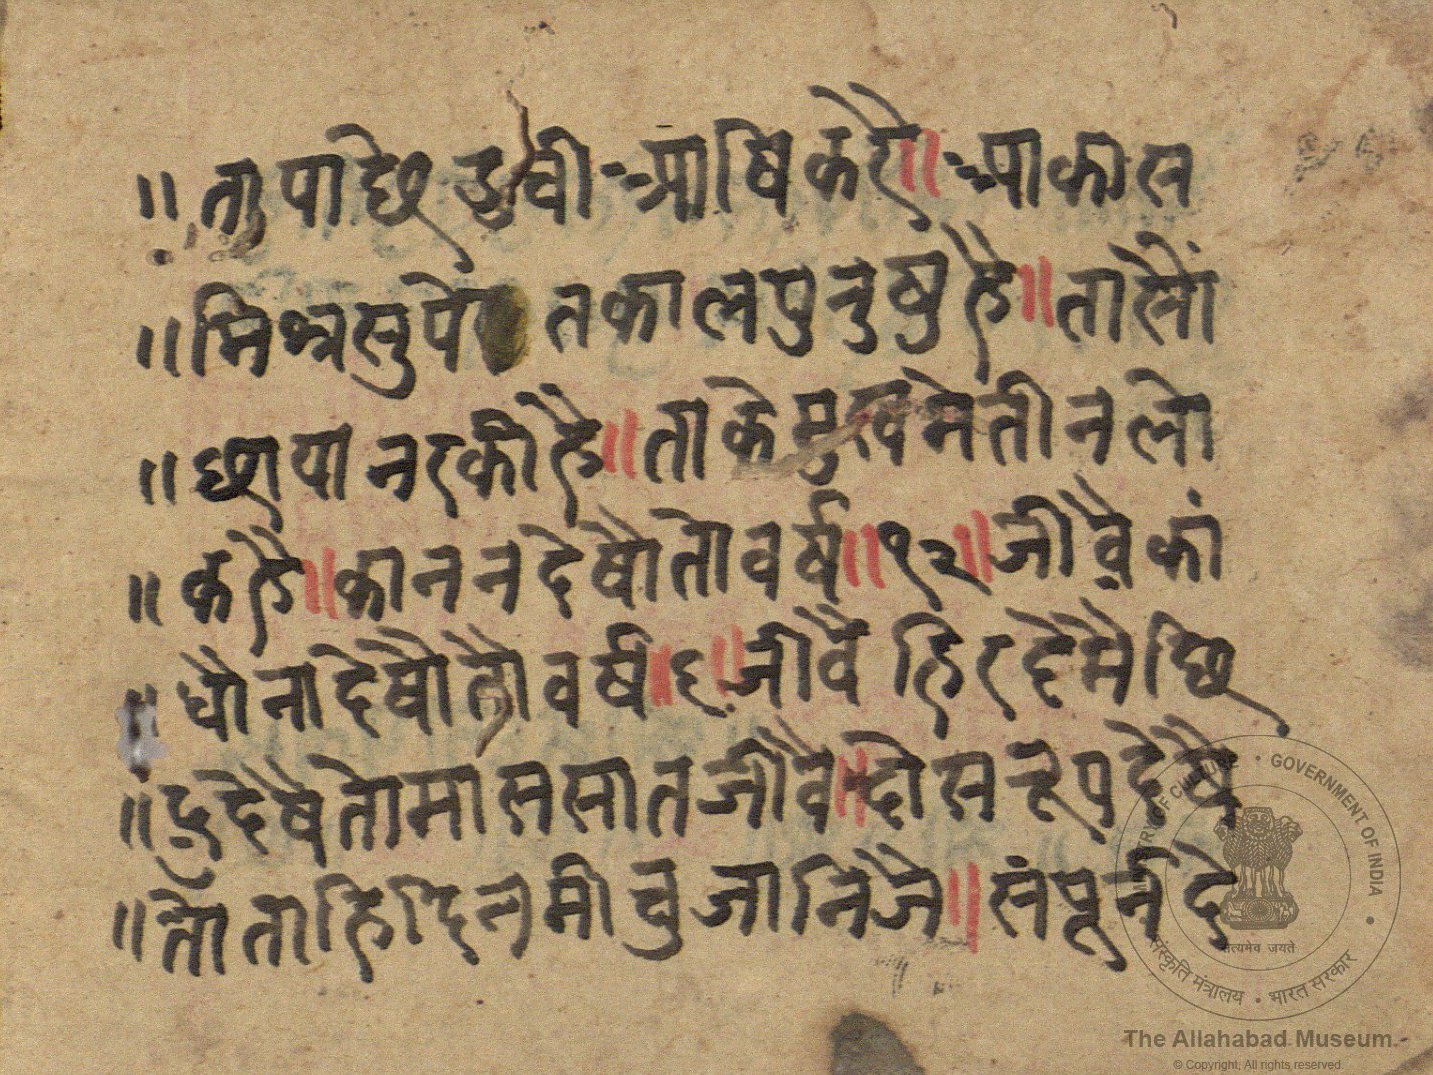 ॥ ता पाछै डुवी आषि करै॥ आकास
॥ भिन्न सुपें त काल पुनुषु है॥ तास्नौं
॥ छाया नर की है॥ ताके मुख मे तीन लो
॥ क है॥ कान न देषौ तो वर्ष॥१२॥ जीवै कां
॥ धौ ना देषौ तौ वर्ष॥६॥ जीवै हिरदै मै छि
॥ द्र देषै तो मास सात जीवै॥ दोस रूप देषै
॥ तो ताहि दिन मीचु जानिजै॥ संपूर्न दे
MINISTRY OF CULTURE • GOVERNMENT OF INDIA
सत्यमेव जयते
संस्कृति मंत्रालय • भारत सरकार
The Allahabad Museum
© Copyright, All rights reserved